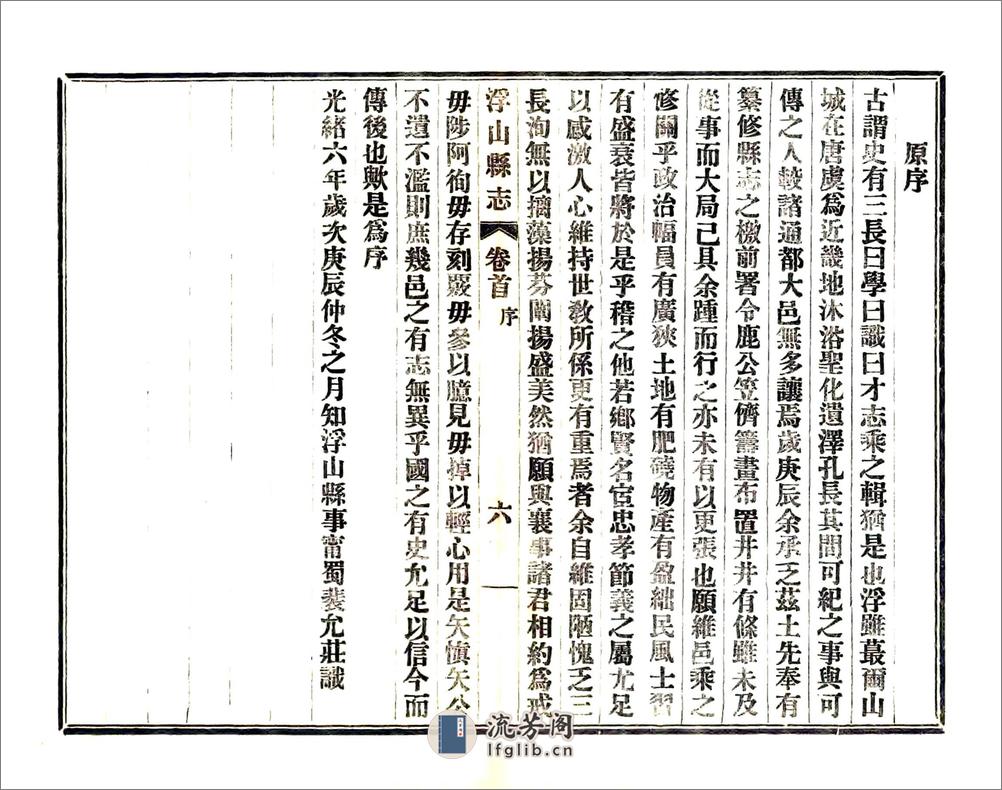 原序
古謂史有三長曰學曰識曰才志乘之輯猶是也浮雖蕞爾山
城在唐虞爲近畿地沐浴聖化遺澤孔長其間可紀之事與可
傳之人較諸通都大邑無多讓焉歲庚辰余承乏茲土先奉有
纂修縣志之檄前署令鹿公笠儕籌畫布置井井有條雖未及
從事而大局已具余踵而行之亦未有以更張也願維邑乘之
修關乎政治幅員有廣狹土地有肥磽物產有盈絀民風士習
有盛衰皆將於是乎稽之他若鄉賢名宦忠孝節義之屬尤足
以感激人心維持世敎所係更有重焉者余自維固陋愧乏三
長洵無以摛藻揚芬闡揚盛美然猶願與襄事諸君相約爲戒
浮山縣志 卷首 序 六
毋陟阿徇毋存刻覈毋參以臆見毋掉以輕心用是矢愼矢公
不遺不濫則庶幾邑之有志無異乎國之有史尤足以信今而
傳後也歟是爲序
光緒六年歲次庚辰仲冬之月知浮山縣事甯蜀裴允莊識
流芳阁
lfglib.cn